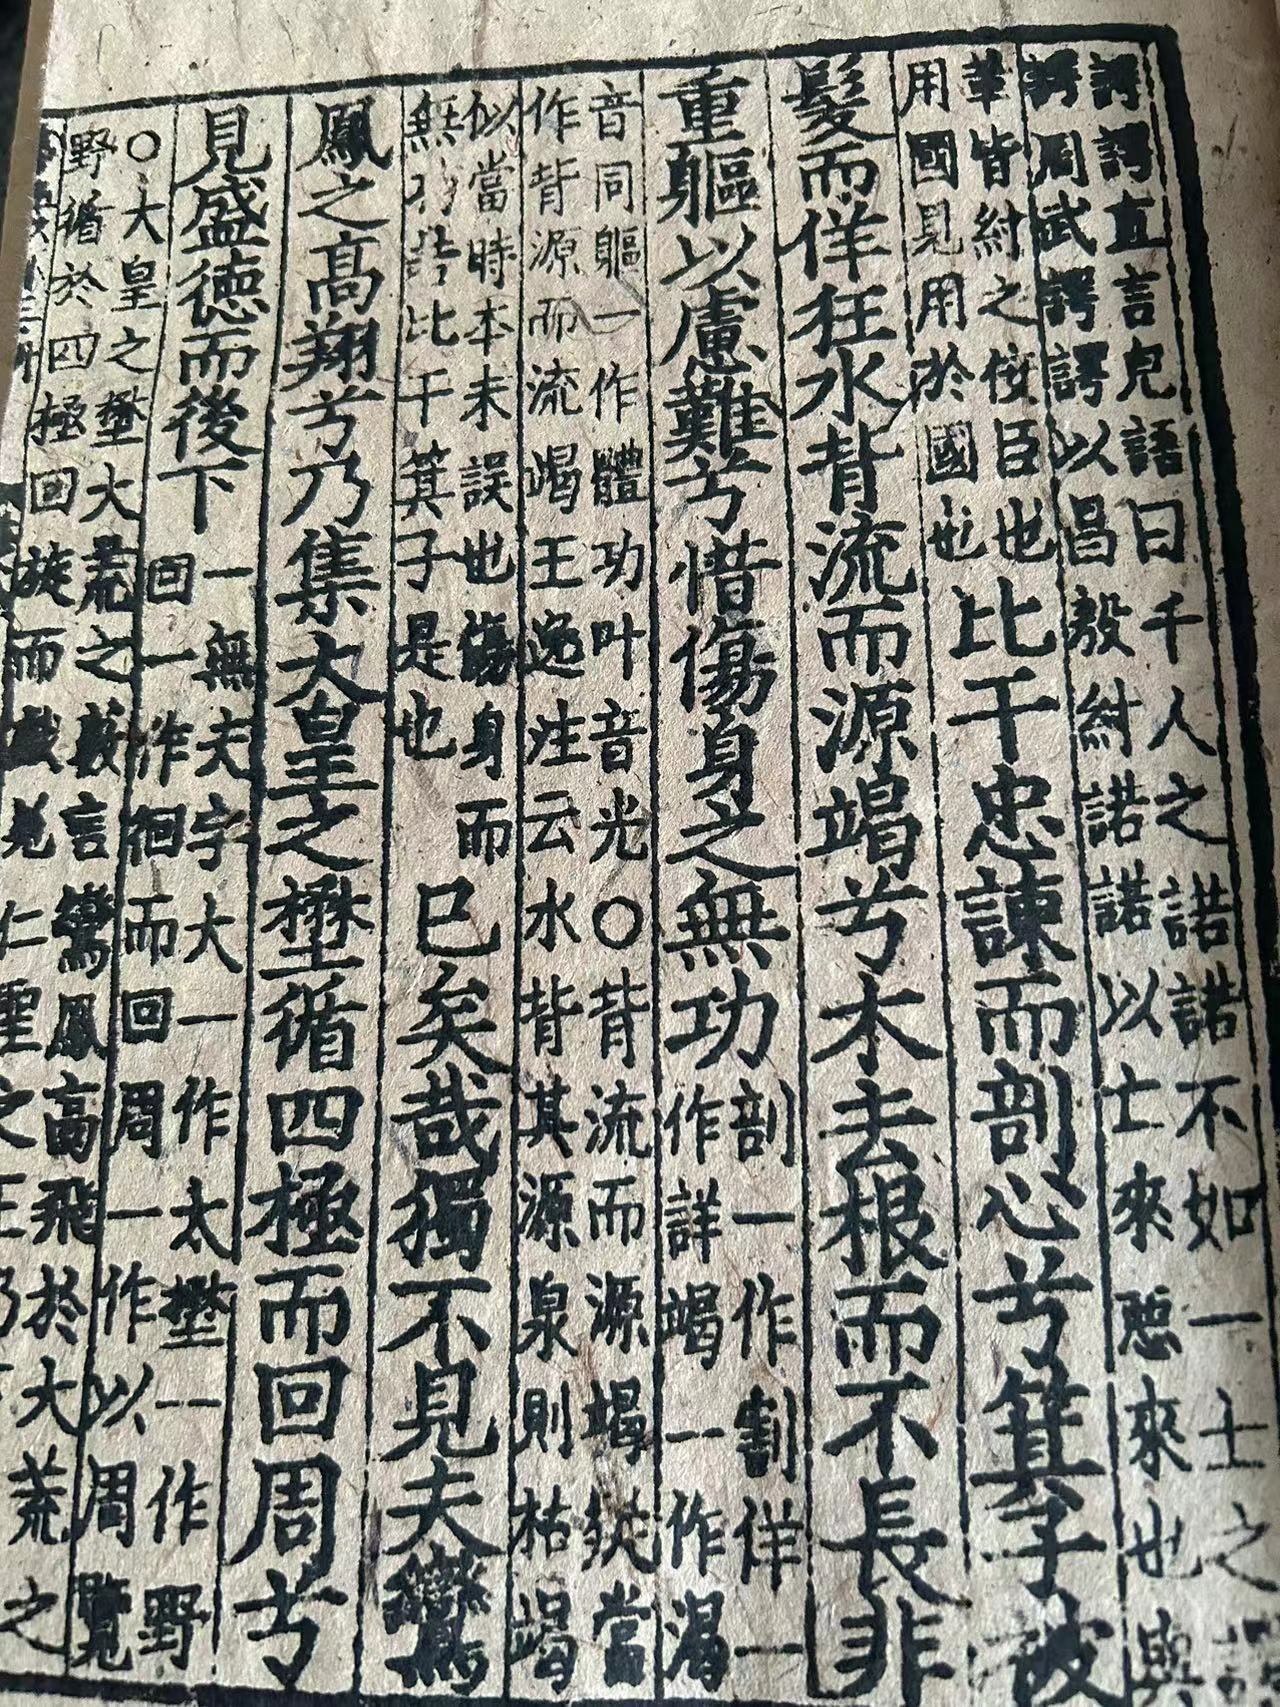 諤諤直言皃語曰千人之諾諾不如一士之諤
諤周武諤諤以昌殷紂諾諾以亡來惡來也與
革皆紂之佞臣也
用國見用於國也
比干忠諫而剖心兮箕子被
髮而佯狂水背流而源竭兮木去根而不長非
重軀以慮難兮惜傷身之無功
剖一作割佯一
作詳竭一作渴
音同軀一作體功叶音光○背流而源竭從當
作背源而流竭王逸注云水背其源泉則枯竭
似當時本未誤也傷身而
無功比干箕子是也
已矣哉獨不見夫鸞
鳳之高翔兮乃集大皇之壄循四極而回周兮
見盛德而後下
一無夫字大一作太壄一作野
回一作徊而回周一作以周覽
○大皇之壄大荒之藪言鸞鳳高飛於大荒之
野循於四極回旋而戲見仁聖之王乃